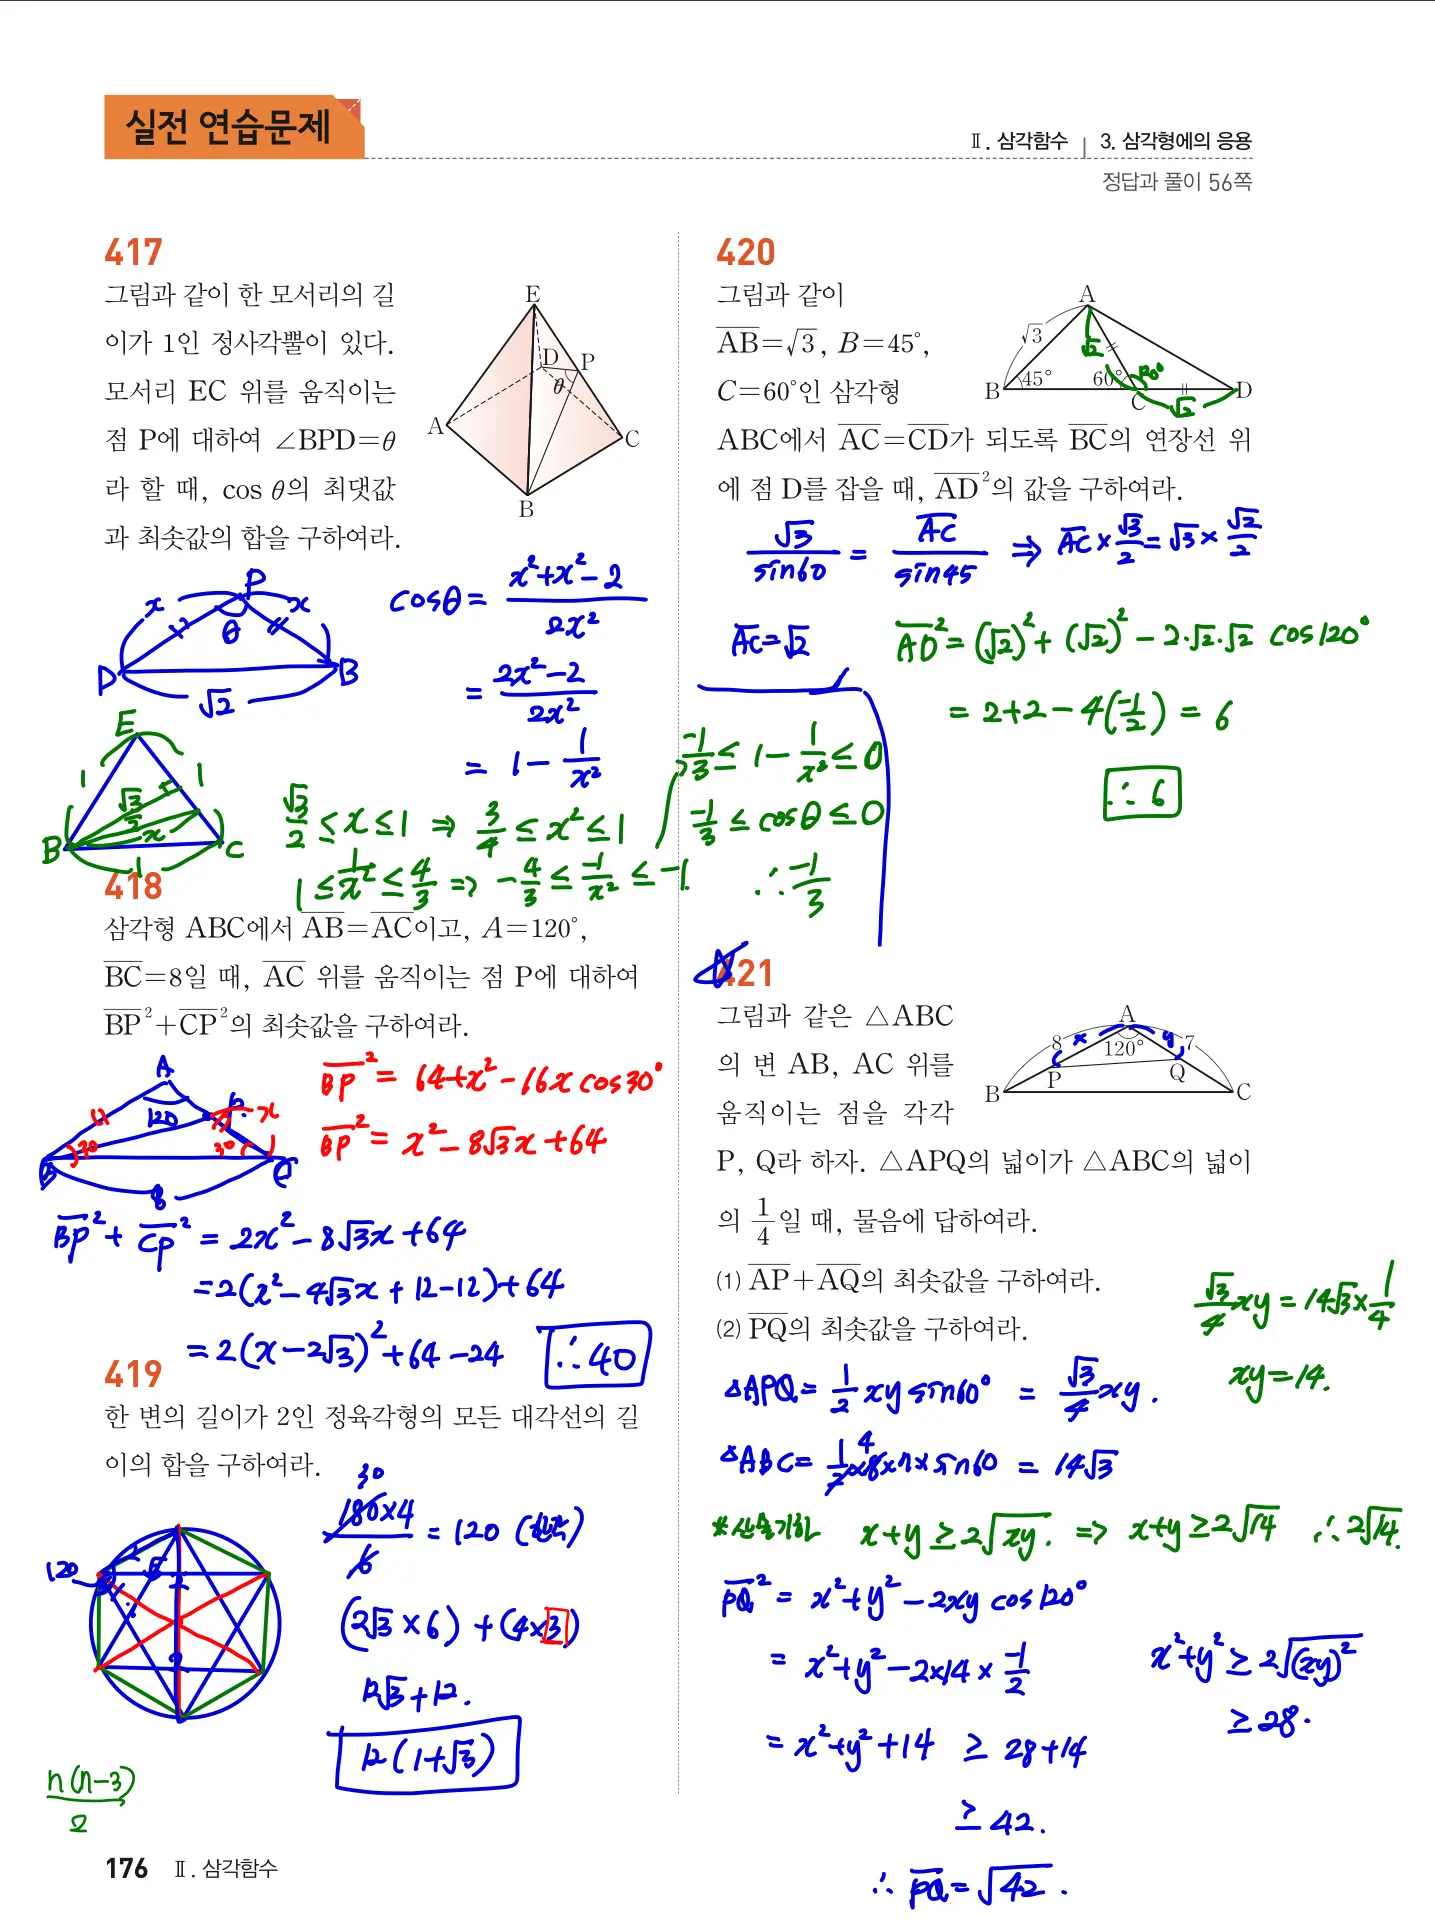 실전 연습문제
Ⅱ. 삼각함수 | 3. 삼각형에의 응용
정답과 풀이 56쪽
417
그림과 같이 한 모서리의 길
이가 1인 정사각뿔이 있다.
모서리 EC 위를 움직이는
점 P에 대하여 ∠BPD=θ
라 할 때, cos θ의 최댓값
과 최솟값의 합을 구하여라.
E
D P
θ
A
C
B
P
x x
θ
D B
√2
cosθ = (x²+x²-2)/(2x²)
= (2x²-2)/(2x²)
= 1 - 1/x²
E
1 1
√3/2
x
B C
1
√3/2 ≤ x ≤ 1 ⇒ 3/4 ≤ x² ≤ 1
1 ≤ 1/x² ≤ 4/3 ⇒ -4/3 ≤ -1/x² ≤ -1
-1/3 ≤ 1 - 1/x² ≤ 0
-1/3 ≤ cosθ ≤ 0
∴ -1/3
418
삼각형 ABC에서 AB=AC이고, A=120°,
BC=8일 때, AC 위를 움직이는 점 P에 대하여
BP²+CP²의 최솟값을 구하여라.
A
120
P
x
30 30
B C
8
BP² = 64+x²-16x cos30°
BP² = x²-8√3x+64
BP²+CP² = 2x²-8√3x+64
=2(x²-4√3x+12-12)+64
=2(x-2√3)²+64-24
∴40
419
한 변의 길이가 2인 정육각형의 모든 대각선의 길
이의 합을 구하여라.
120
2
√3
2
2
30
180×4/6 = 120 (한각)
(2√3×6)+(4×3)
12√3+12.
12(1+√3)
n(n-3)/2
420
그림과 같이
AB=√3, B=45°,
C=60°인 삼각형
ABC에서 AC=CD가 되도록 BC의 연장선 위
에 점 D를 잡을 때, AD²의 값을 구하여라.
A
√3
√2
45° 60° 120°
B C D
√2
√3/sin60 = AC/sin45 ⇒ AC×√3/2=√3×√2/2
AC=√2
AD²=(√2)²+(√2)²-2·√2·√2 cos120°
= 2+2-4(-1/2) = 6
∴ 6
421
그림과 같은 △ABC
의 변 AB, AC 위를
움직이는 점을 각각
P, Q라 하자. △APQ의 넓이가 △ABC의 넓이
의 1/4일 때, 물음에 답하여라.
⑴ AP+AQ의 최솟값을 구하여라.
⑵ PQ의 최솟값을 구하여라.
A
8 x y 7
120°
P Q
B C
√3/4 xy = 14√3×1/4
xy=14.
△APQ= 1/2 xy sin60° = √3/4 xy.
△ABC= 1/2×8×7×sin60 = 14√3
4
※산술기하 x+y ≥ 2√xy. ⇒ x+y ≥ 2√14 ∴2√14.
PQ² = x²+y²-2xy cos120°
= x²+y²-2×14×-1/2
= x²+y²+14 ≥ 28+14
≥ 42.
∴ PQ=√42.
x²+y² ≥ 2√(xy)²
≥ 28.
176 Ⅱ. 삼각함수